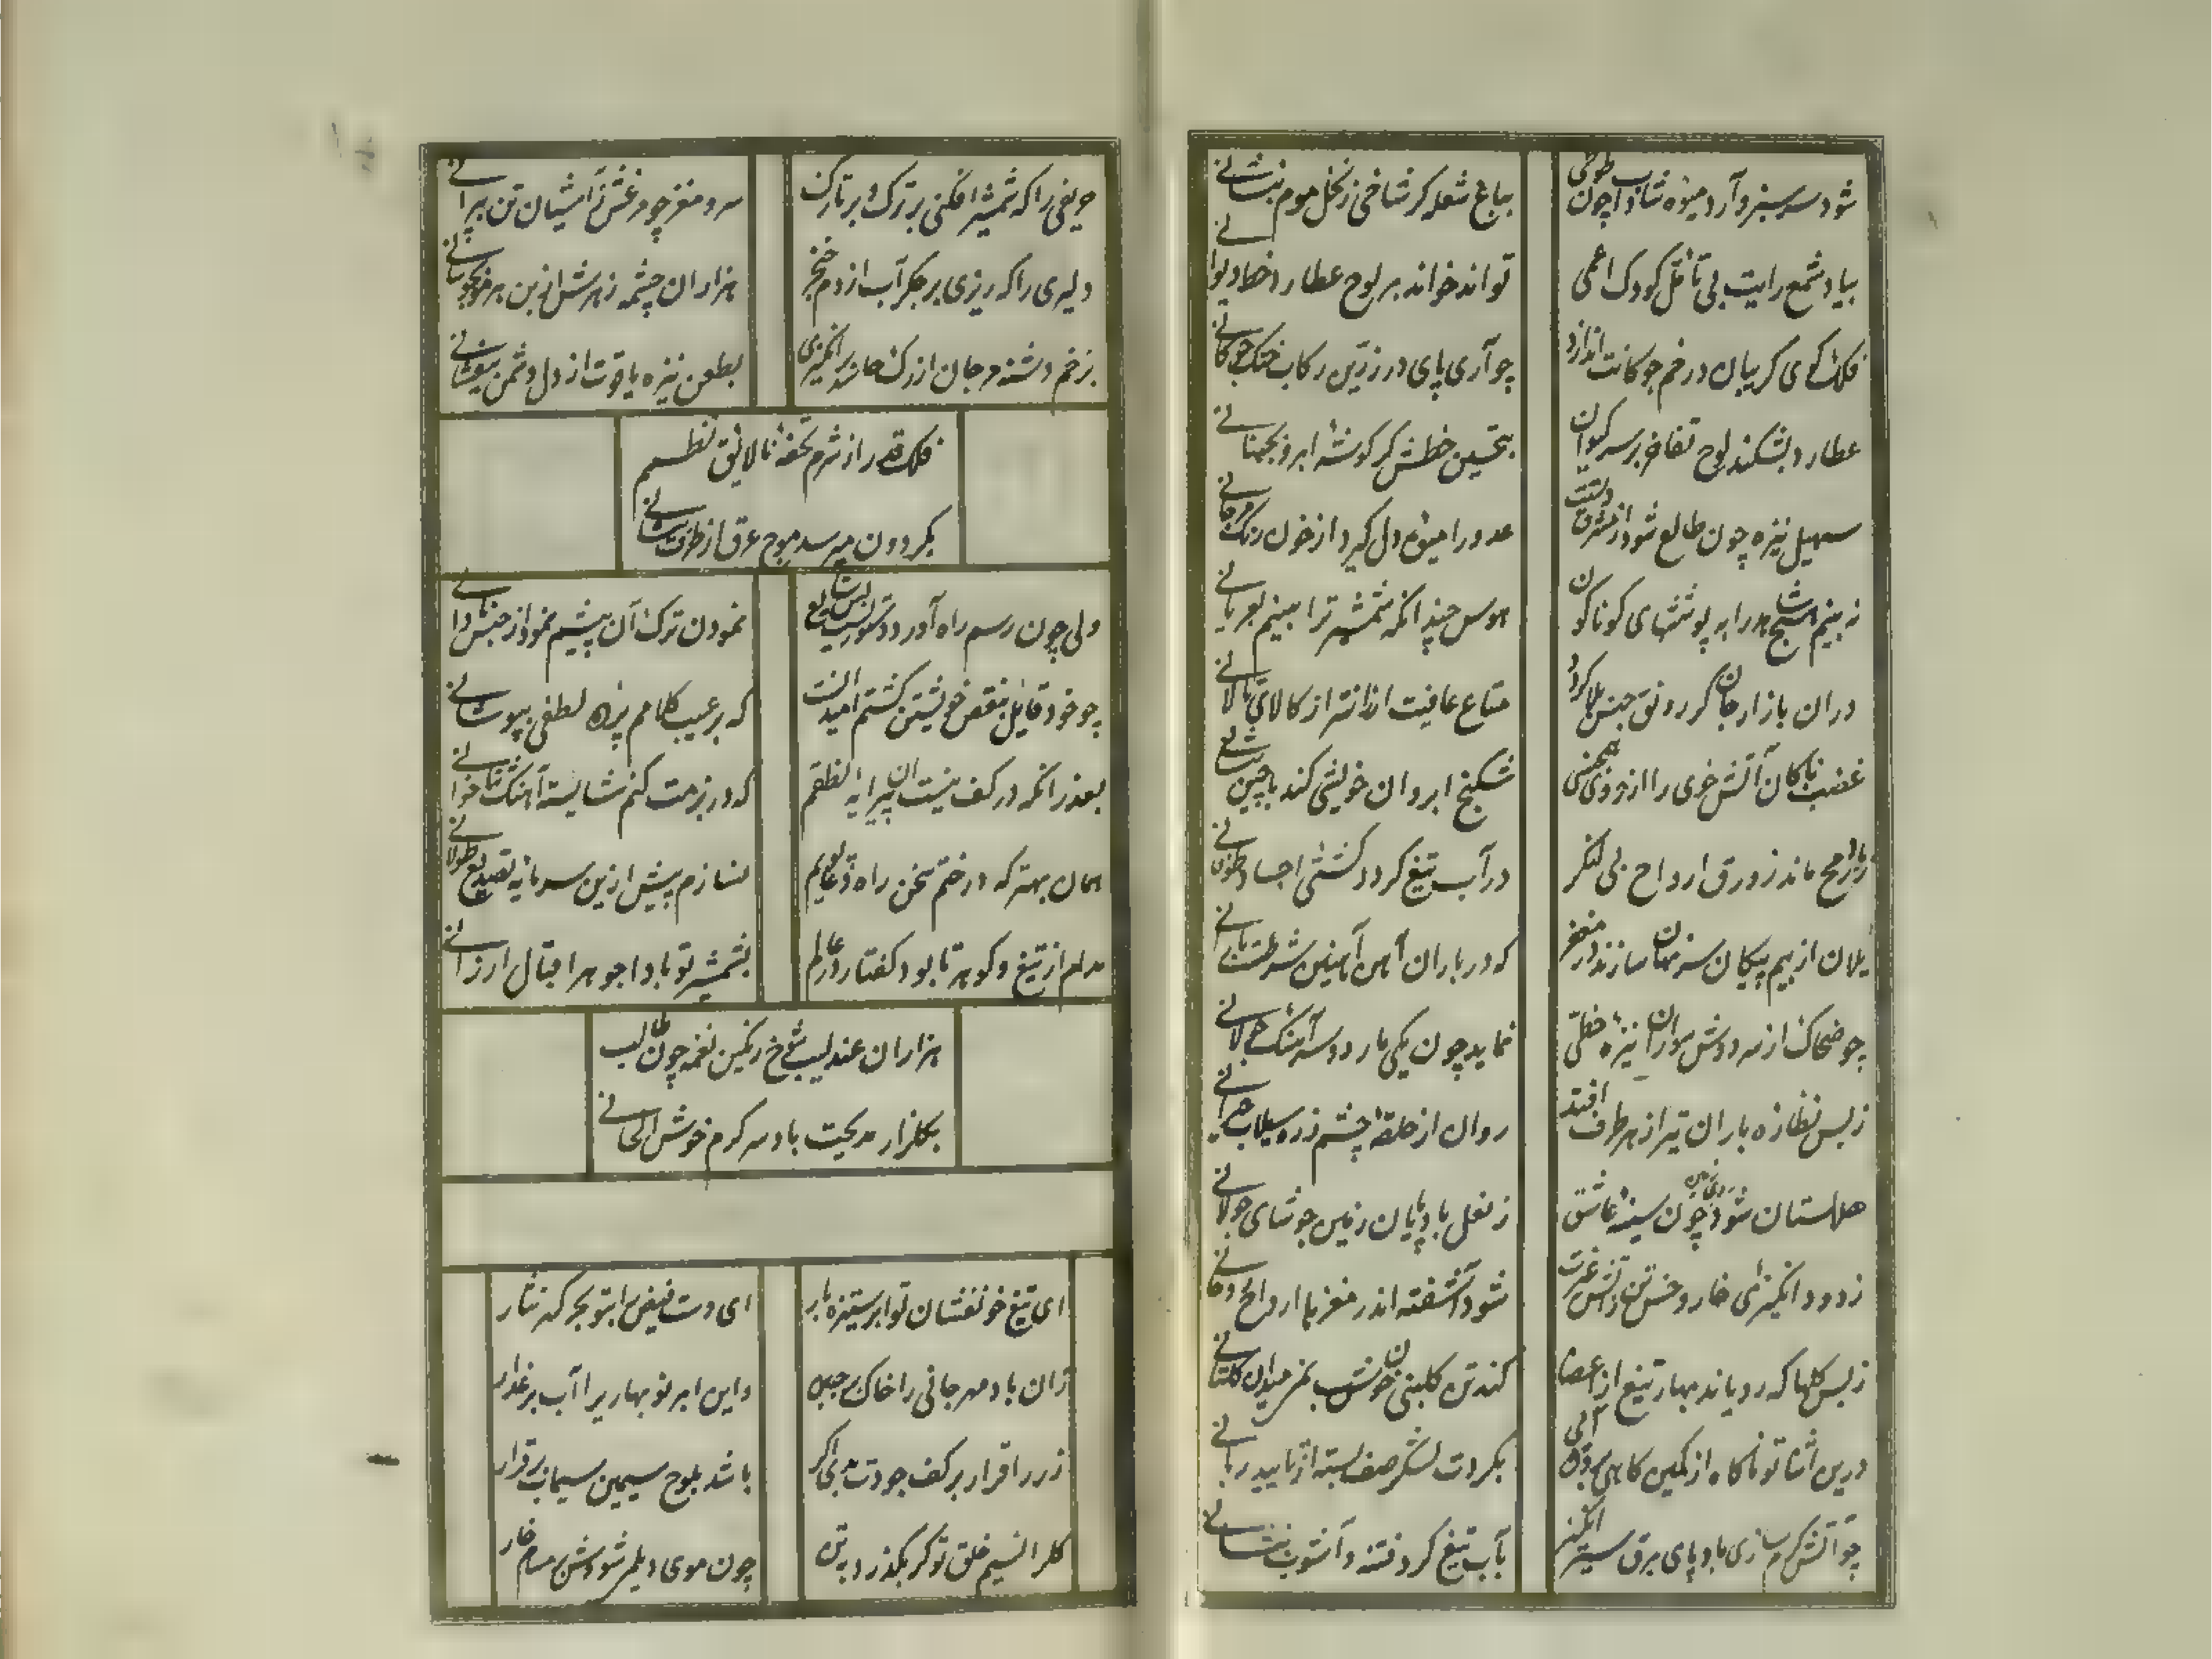 شود سرسبز و آرد میوه شاداب چون طوبی
بباغ شعله کر شاخی ز نخل موم بنشانی
بیاد شمع رایت بی تأمل کودک اعمی
تواند خواند بر لوح عطارد خط دیوانی
فلک کوی کریبان در خم چوکانت اندازد
چو آری پای در زرین رکاب خنک چوکانی
عطارد بشکند لوح تفاخر بر سر کیوان
بتحسین خطش کر کوشه ابرو بجنبانی
سهیل نیزه چون طالع شود از مشرق دستت
عدو را میوه دل کیرد از خون رنک
نه بینم هیچ را به پوششهای کوناکون
هوس چندانکه شمشیر ترا بینم بعریانی
دران بازار جان کر رونق جنس بلا کردد
متاع عافیت ارزانتر از کالای کالانی
غضبناکان آتش خوی را از روی
شکنج ابروان خویش کند با چین پیشانی
ماند زورق ارواح بی لنکر
در آب تیغ کردد کشتی اجساد طوفانی
یلان از بیم پیکان سر نهان سازند در مغفر
که در باران آهن
چو ضحاک از سر دوش سواران نیزه خطی
نماید چون یکی مار دو سر آهنک
ز بس نظاره باران تیر از هر طرف افتد
روان از حلقه چشم زره سیلاب حیرانی
هلالستان شود روی زمین چون سینه عاشق
ز نعل بادپایان زمین جوشای جولانی
ز دود انکیزی خار و خس تن ز آتش غیرت
شود آشفته اندر مغزها ارواح
ز بس کلها که رویاند بهار تیغ از اعضا
کند تن کلبنی خونش بهر میدان کلستانی
درین اثنا تو ناکاه از کمین کاهی برون آئی
بکردت لشکر صف بسته از تایید ربانی
چو آتش کرم سازی بادپای برق سیر انکیز
بآب تیغ کرد فتنه و آشوب بنشانی
حریفی را که شمشیر افکنی بر ترک و بر تارک
سر و مغز چو درغش ز آشیان تن بپرانی
دلیری را که ریزی بر جکر آب از دم خنجر
هزاران چشمه زهرش از بن هر مو بجوشانی
بزخم دشنه مرجان از رک خارا برانکیزی
بطعن نیزه یاقوت از دل دشمن بیفشانی
فلک قدرا ز شرم تحفه نالایق نظمم
بکردون میرسد موج عرق از طرف پیشانی
ولی چون رسم راه آورد دستوریست بس شایع
نمودن ترک آن پیشم نمود از جنس نادانی
چو خود قائل بنقص خویشتن کشتم امید آنست
که بر عیب کلامم پرده لطفی بپوشانی
بعذر آنکه در کف نیست آن پیرایه نطقم
که در بزمت کنم شایسته آهنک ثناخوانی
همان بهتر که در ختم سخن راه دعا پویم
نسازم پیش ازین سرمایه تصدیع طولانی
مدام از تیغ و کوهر تا بود کفتار در عالم
بشمشیر تو بادا جوهر اقبال ارزانی
هزاران عندلیب شوخ رنکین نغمه چون طالب
بکلزار مدیحت باد سرکرم خوش الحانی
ای تیغ خونفشان تو ابر ستیزه بار
ای دست فیض بر تو بحر کهر نثار
زان باد مهرجانی را خاک بر جبین
و این ابر نوبهاری را آب بر عذار
زر را قرار بر کف جودت بدان کر
باشد بلوح سیمین سیماب برقرار
کل را نسیم خلق تو کر بکذرد به تن
چون موی دیلمی شودش بر مسام خار